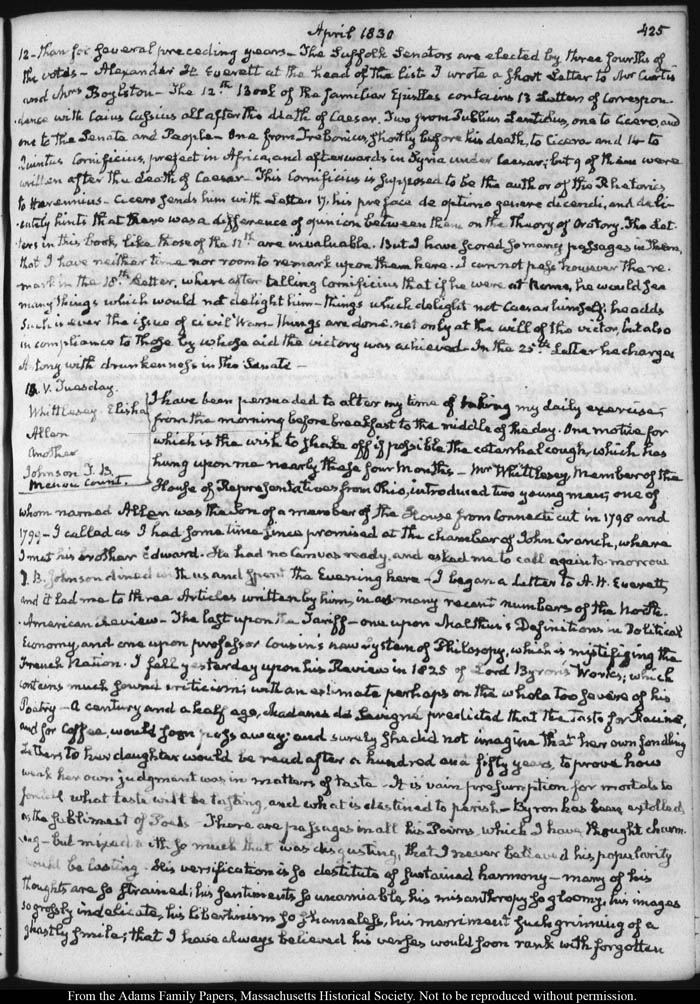 April 1830
425
12- than for several preceding years - The Suffolk Senators are elected by three fourths of
the votes - Alexander H. Everett at the head of the list. I wrote a short Letter to Mr Curtis
and Mrs Boylston - The 12th Book of the familiar Epistles contains 13 Letters of Correspon-
dence with Caius Cassius all after the death of Caesar. Two from Publius Lentulus, one to Cicero, and
one to the Senate and People - One from Trebonius shortly before his death, to Cicero and 14 to
Quintus Cornificius, prefect in Africa, and afterwards in Syria under Caesar; but 9 of them were
written after the death of Caesar - This Cornificius is supposed to be the author of the Rhetorics
to Herennius - Cicero sends him with Letter 17, his preface de optimo genere dicendi, and deli-
cately hints that there was a difference of opinion between them on the Theory of Oratory. The Let-
ters in this book, like those of the 11th are invaluable. But I have scored so many passages in them,
that I have neither time nor room to remark upon them here. I cannot pass however the re-
mark in the 18th Letter, where after telling Cornificius that if he were at Rome, he would see
many things which would not delight him - things which delight not Caesar himself; he adds
Such is ever the issue of civil Wars - things are done not only at the will of the victor, but also
in compliance to those by whose aid the victory was achieved - In the 25th Letter he charges
Antony with drunkenness in the Senate -
13. V. Tuesday.
Whittlesey Elisha
Allen
Another
Johnson T. B.
Menou Count.
I have been persuaded to alter my time of taking my daily exercise,
from the morning before breakfast to the middle of the day. One motive for
which is the wish to shake off if possible the catarrhal cough, which has
hung upon me nearly these four Months - Mr Whittlesey Member of the
House of Representatives from Ohio, introduced two young men; one of
whom named Allen was the Son of a member of the House from Connecticut in 1798 and
1799 - I called as I had some time since promised at the chamber of John Cranch, where
I met his brother Edward. He had no Canvas ready, and asked me to call again to-morrow
T. B. Johnson dined with us and spent the Evening here - I began a Letter to A. H. Everett,
and it led me to three Articles written by him, in as many recent numbers of the North-
American Review - The last upon the Tariff - one upon Malthus's Definitions in Political
Economy, and one upon professor Cousin's new System of Philosophy, which is mystifizing the
French Nation. I fell yesterday upon his Review in 1825 of Lord Byron's Works; which
contains much sound criticism; with an estimate perhaps on the whole too severe of his
Poetry - A century and a half ago, Madame de Sevigné predicted that the taste for Racine,
and for Coffee, would soon pass away; and surely she did not imagine that her own fondling
Letters to her daughter would be read after a hundred and fifty years, to prove how
weak her own judgment was in matters of taste - It is vain presumption for mortals to
foretell what taste will be lasting, and what is destined to perish - Byron has been extolled
as the sublimest of Poets - There are passages in all his Poems, which I have thought charm-
ing - but mixed with so much that was disgusting, that I never believed his popularity
would be lasting - His versification is so destitute of sustained harmony - many of his
thoughts are so strained; his sentiments so unamiable, his misanthropy so gloomy; his images
so grossly indelicate, his libertinism so shameless, his merriment such grinning of a
ghastly smile; that I have always believed his verses would soon rank with forgotten
From the Adams Family Papers, Massachusetts Historical Society. Not to be reproduced without permission.